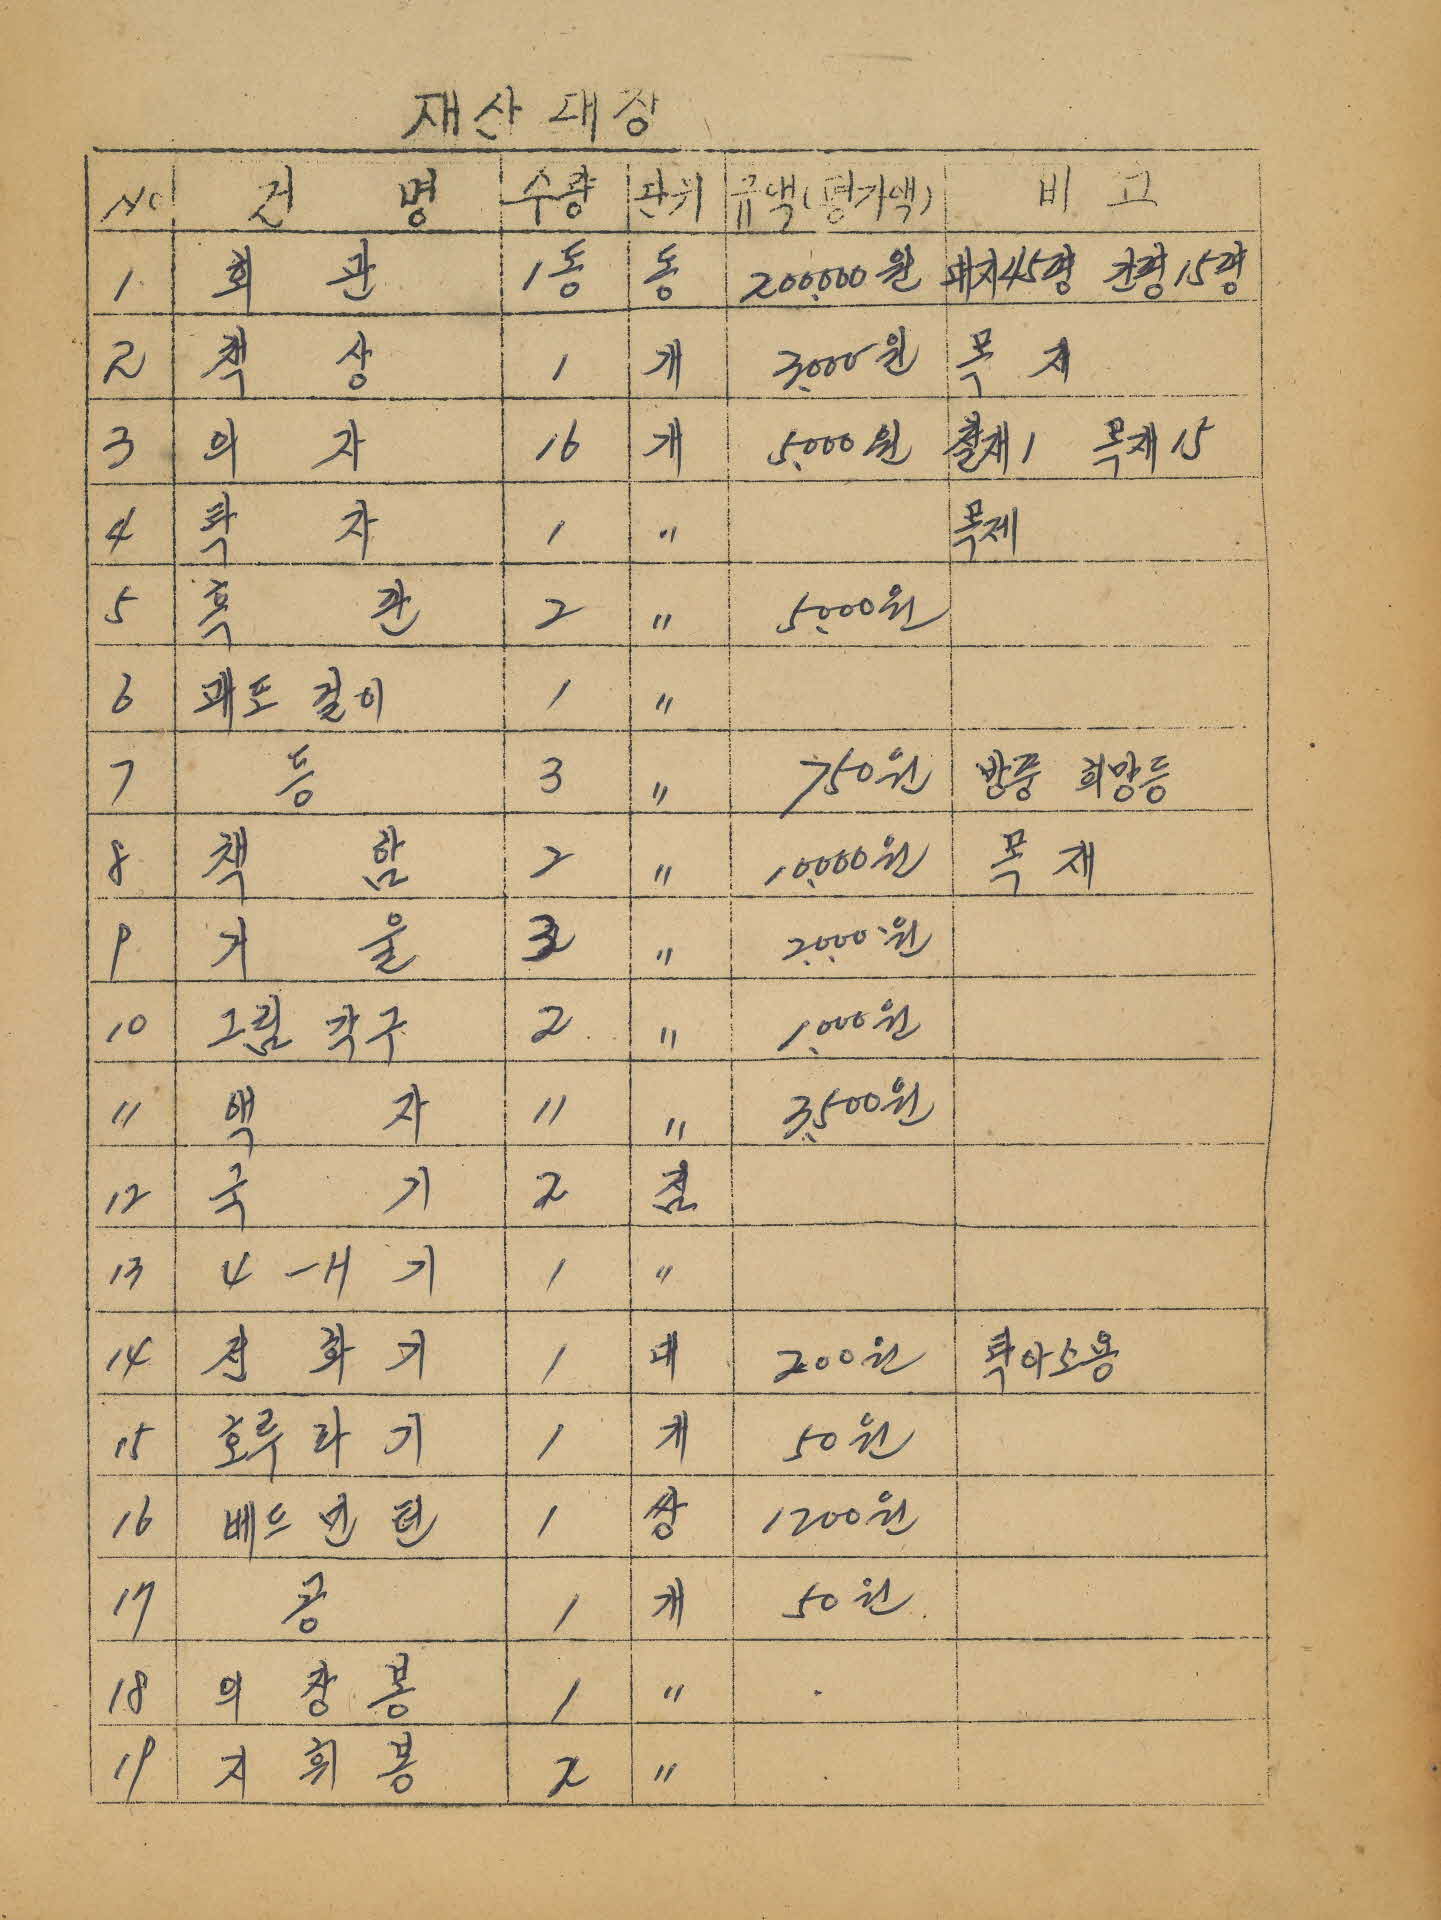 재산대장
No 건 명 수량 단위 금액(평가액) 비 고
1 회 관 1동 동 200,000원 대지45평 건평15평
2 책 상 1 개 3,000원 목 재
3 의 자 16 개 5,000원 철재1 목재15
4 탁 자 1 〃 목제
5 흑 판 2 〃 5,000원
6 괘도 걸이 1 〃
7 등 3 〃 750원 방풍 희망등
8 책 함 2 〃 10,000원 목 재
9 거 울 〃 2,000원
10 그림 각구 2 〃 1,000원
11 액 자 11 〃 3,500원
12 국 기 2 점
13 4-H 기 1 〃
14 전 화 기 1 대 200원 탁아소용
15 호루라기 1 개 50원
16 베드민턴 1 쌍 1200원
17 공 1 개 50원
18 의 장 봉 1 〃
19 지 휘 봉 2 〃